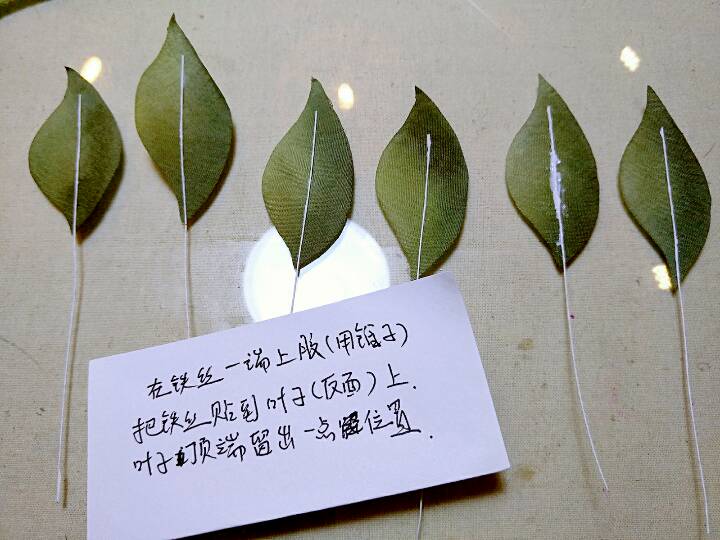 在铁丝一端上胶(用锥子)
把铁丝贴到叶子(反面)上.
叶子顶端留出一点位置.